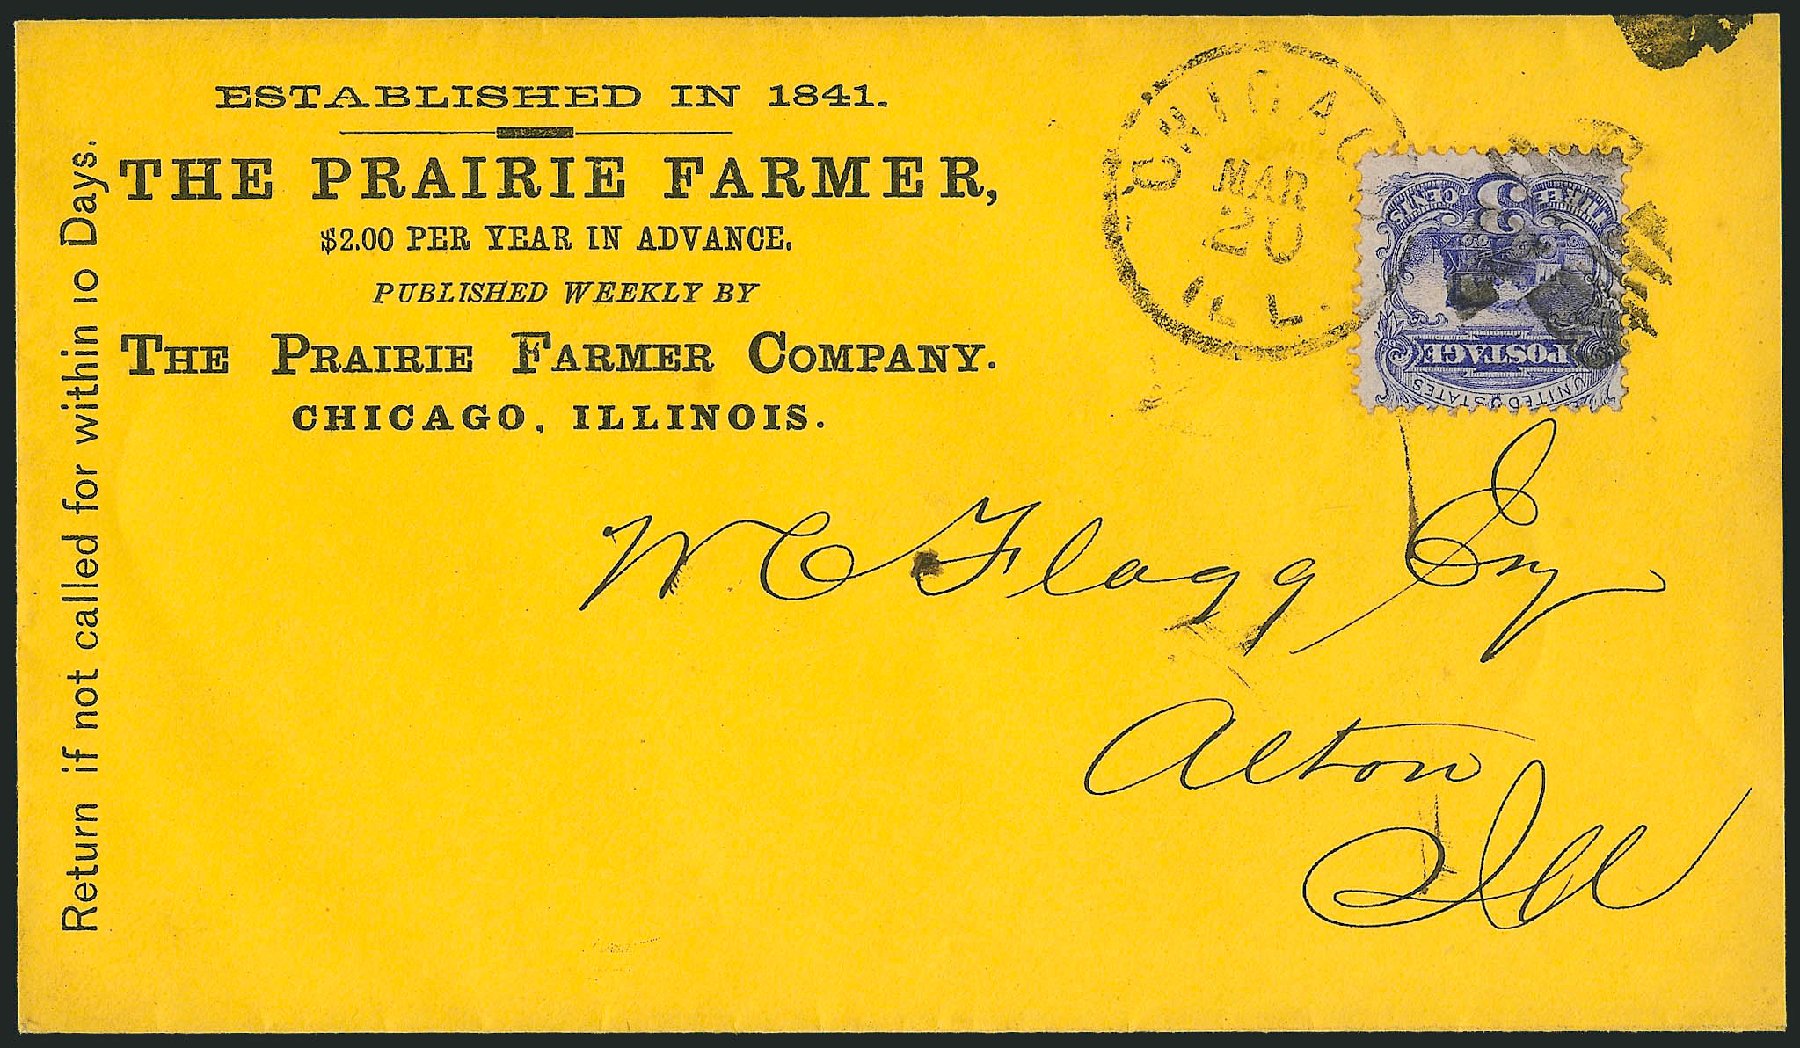 ESTABLISHED IN 1841.
THE PRAIRIE FARMER,
$2.00 PER YEAR IN ADVANCE.
PUBLISHED WEEKLY BY
THE PRAIRIE FARMER COMPANY.
CHICAGO, ILLINOIS.
Return if not called for within 10 Days.
CHICAGO
MAR
20
ILL.
THREE 3 CENTS
POSTAGE
UNITED STATES
W C Flagg Esq
Alton
Ill